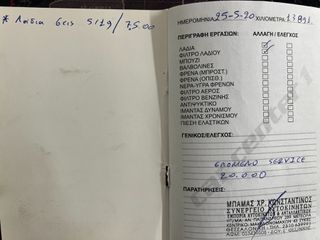 * Λάδια στις 5/19/7500
ΗΜΕΡΟΜΗΝΙΑ 25-5-20 ΧΙΛΙΟΜΕΤΡΑ
ΠΕΡΙΓΡΑΦΗ ΕΡΓΑΣΙΩΝ: ΑΛΛΑΓΗ / ΕΛΕΓΧΟΣ
ΛΑΔΙΑ
ΦΙΛΤΡΟ ΛΑΔΙΟΥ
ΜΠΟΥΖΙ
ΒΑΛΒΟΛΙΝΕΣ
ΦΡΕΝΑ (ΜΠΡΟΣΤ.)
ΦΡΕΝΑ (ΟΠΙΣΘ.)
ΝΕΡΑ-ΥΓΡΑ ΦΡΕΝΩΝ
ΦΙΛΤΡΟ ΑΕΡΟΣ
ΦΙΛΤΡΟ ΒΕΝΖΙΝΗΣ
ΑΝΤΙΨΥΚΤΙΚΟ
ΙΜΑΝΤΑΣ ΔΥΝΑΜΟΥ
ΙΜΑΝΤΑΣ ΧΡΟΝΙΣΜΟΥ
ΠΙΕΣΗ ΕΛΑΣΤΙΚΩΝ
ΓΕΝΙΚΟΣ/ΕΛΕΓΧΟΣ:
ΕΠΟΜΕΝΟ SERVICE
20.000
ΠΑΡΑΤΗΡΗΣΕΙΣ:
ΜΠΑΜΑΣ ΧΡ. ΚΩΝΣΤΑΝΤΙΝΟΣ
ΣΥΝΕΡΓΕΙΟ ΑΥΤΟΚΙΝΗΤΩΝ
ΕΜΠΟΡΙΑ ΑΥΤΟΚΙΝΗΤΩΝ & ΑΝΤΑΛΛΑΚΤΙΚΩΝ